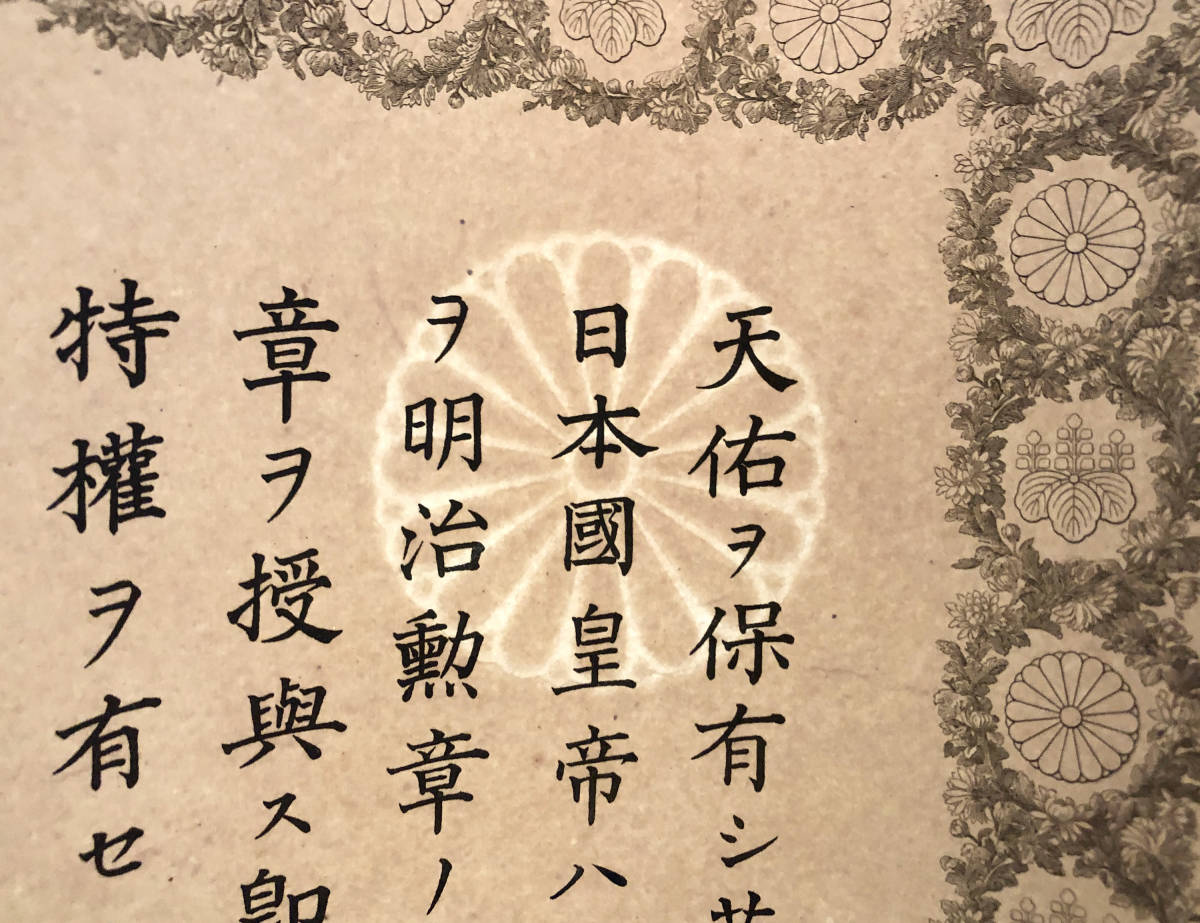 天佑ヲ保有シ
日本國皇帝ハ
ヲ明治勲章ノ
章ヲ授與ス卽
特權ヲ有セ